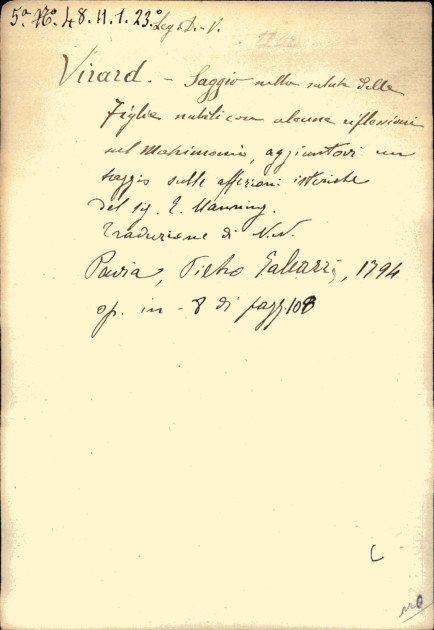 5ª Nº 48. H. 1. 23.º Leg. D. - V.
Virard. - Saggio sulla salute delle
Figlie nubili con alcune riflessioni
sul Matrimonio, aggiuntovi un
saggio sulle affezioni isteriche
del sig. E. Manning.
Traduzione di N.N.
Pavia, Pietro Galeazzi, 1794
op. in - 8 di pagg. 108